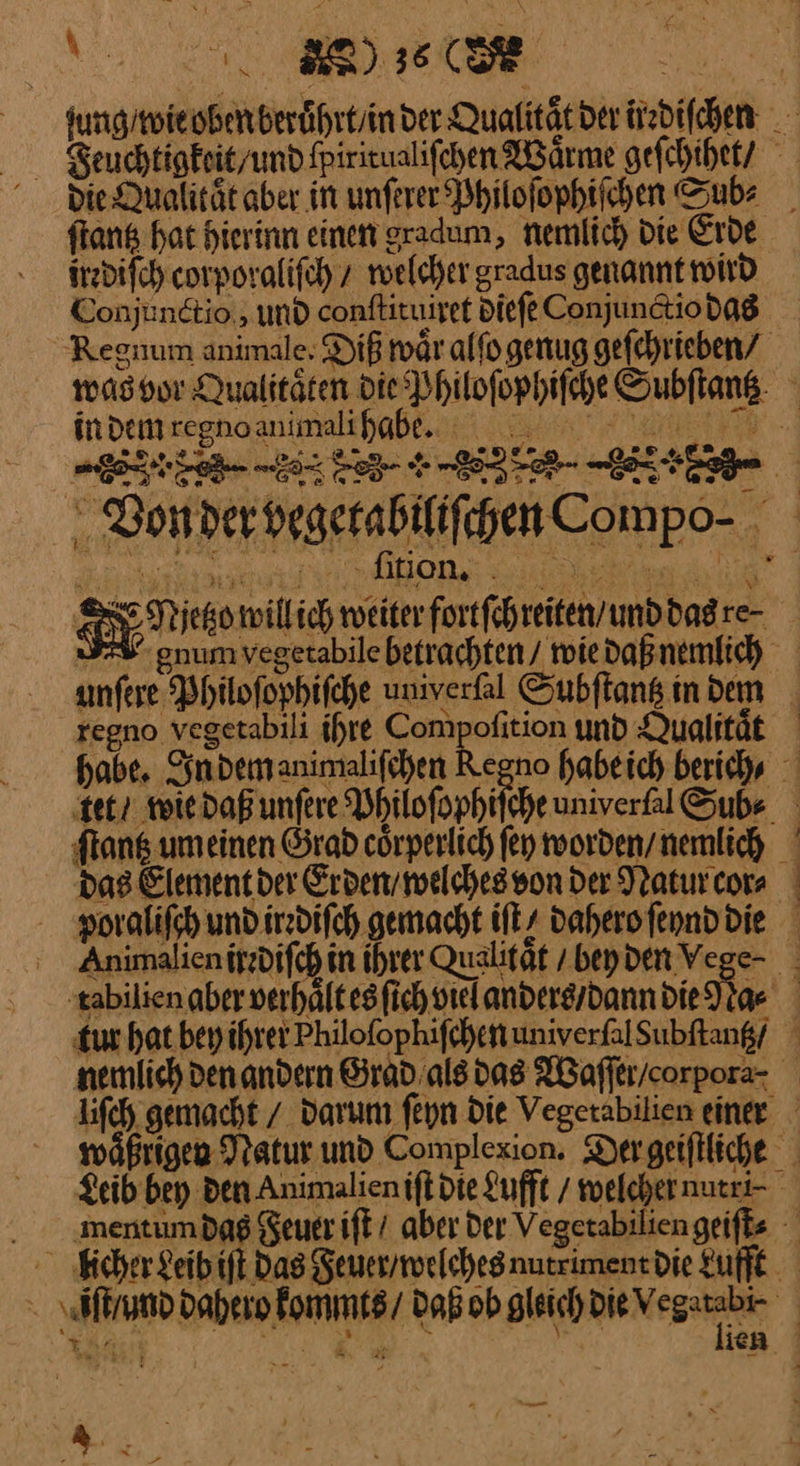 ) 36 (
sung/wie oben berůhrt/in der Qualitåt der irꝛdischen
Feuchtigkeit/und spiritualischen Wårme geschihet/
die Qualitåt aber in unserer Philosophischen Sub⸗
stantz hat hierinn einen gradum, nemlich die Erde
irꝛdisch corporalisch / welcher gradus genannt wird
Conjunctio, und constituiret diese Conjunctio das
Regnum animale. Diß wår also genug geschrieben/
was vor Qualitåten die Philosophische Substantz
in dem regno animali habe.
Von der vegetabilischen Compo-
sition.
Njetzo will ich weiter fortschreiten/und das re-
gnum vegetabile betrachten / wie daß nemlich
unsere Philosophische universal Substantz in dem
regno vegetabili ihre Composition und Qualitåt
habe. In dem animalischen Regno habe ich berich⸗
tet / wie daß unsere Philosophische universal Sub⸗
stantz um einen Grad cörperlich sey worden/nemlich
das Element der Erden/welches von der Natur cor⸗
poralisch und irꝛdisch gemacht ist / dahero seynd die
Animalien irꝛdisch in ihrer Qualitåt / bey den Vege-
tabilien aber verhålt es sich viel anders/dann die Na⸗
tur hat bey ihrer Philosophischen universal Substantz/
nemlich den andern Grad als das Wasser/corpora-
lisch gemacht / darum seyn die Vegetabilien einer
wåßrigen Natur und Complexion. Der geistliche
Leib bey den Animalien ist die Lufft / welcher nutri-
mentum das Feuer ist / aber der Vegetabilien geist⸗
licher Leib ist das Feuer/welches nutriment die Lufft
ist/und dahero kommts / daß ob gleich die Vegatabi-
lien